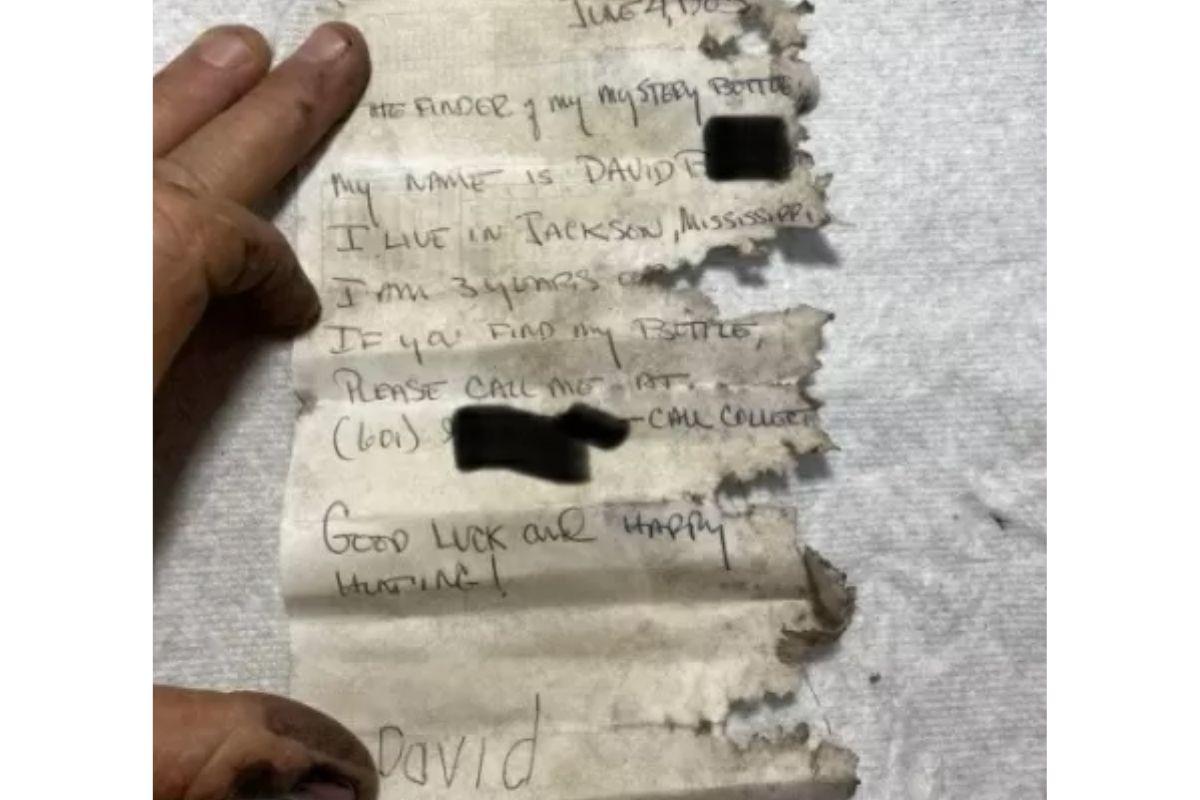 JUNE 4,
HE FINDER of my MYSTERY BOTTLE,
My NAME IS DAVID
I LIVE IN JACKSON, MISSISSIPPI
I AM 3 YEARS
IF you FIND my BOTTLE,
PLEASE CALL ME AT.
(601) - CALL COLLECT
GOOD LUCK and HAPPY
HUNTING!
David